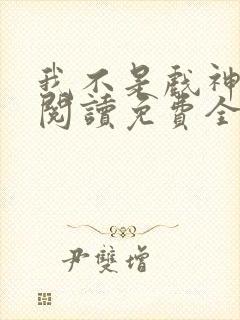 我不是戲神
閱讀免費全
尹雙增